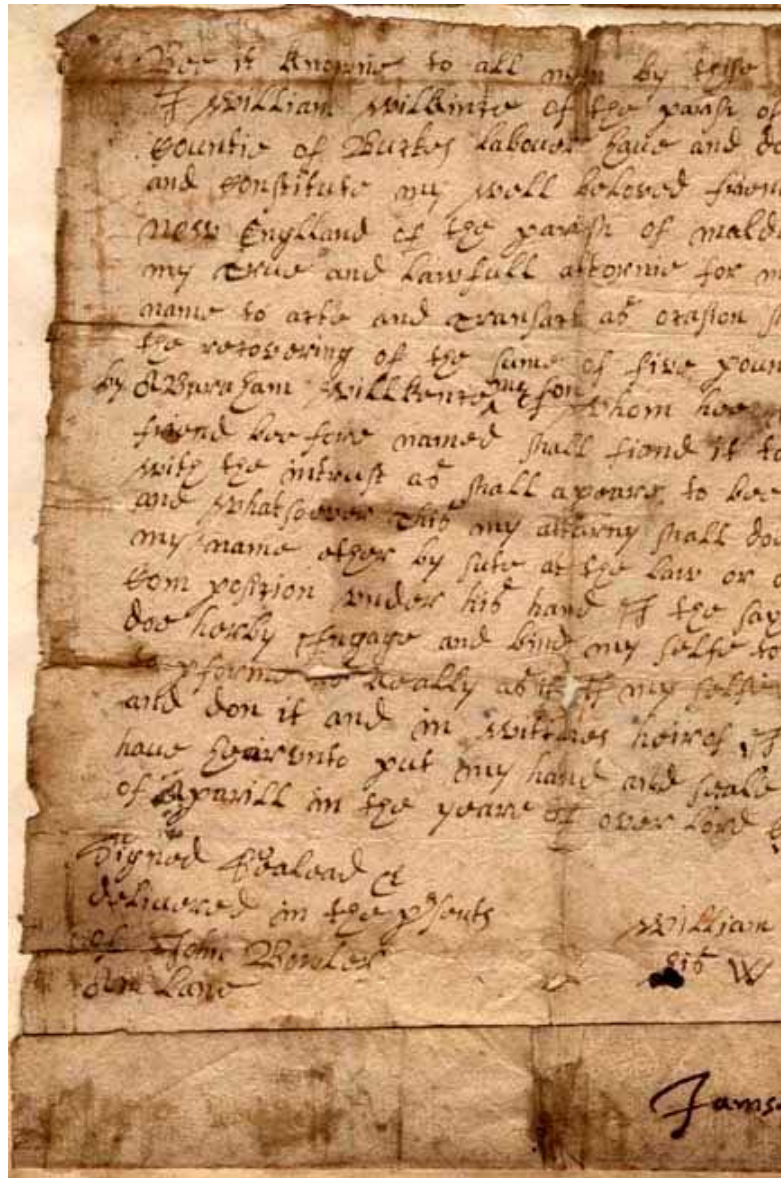 Bee it knowne to all men by these
I William Wilkinse of the parish of
Countie of Burkes labouer have and do
and constitute my well beloved frien
new Englland of the parish of malde
my true and lawfull attornie for m
name to acte and transact as ocasion s
the recovering of the sume of five poun
by Abraham Willkense my son of whom hee
friend beefore named shall fiend it to
with the intrust as shall apeare to bee
and whatsoever this my attarny shall doe
my name ether by sute at the law or
Com position under his hand I the say
doe herby Engage and bind my selfe to
pforme as Really as if I my selfe
and don it and in wittnes heirof I
have heirunto put my hand and seale
of Aparill in the yeare of over lord
Signed Sealead &
delivered in the psents
of John Bowler
Ann Lane
William
his W
James